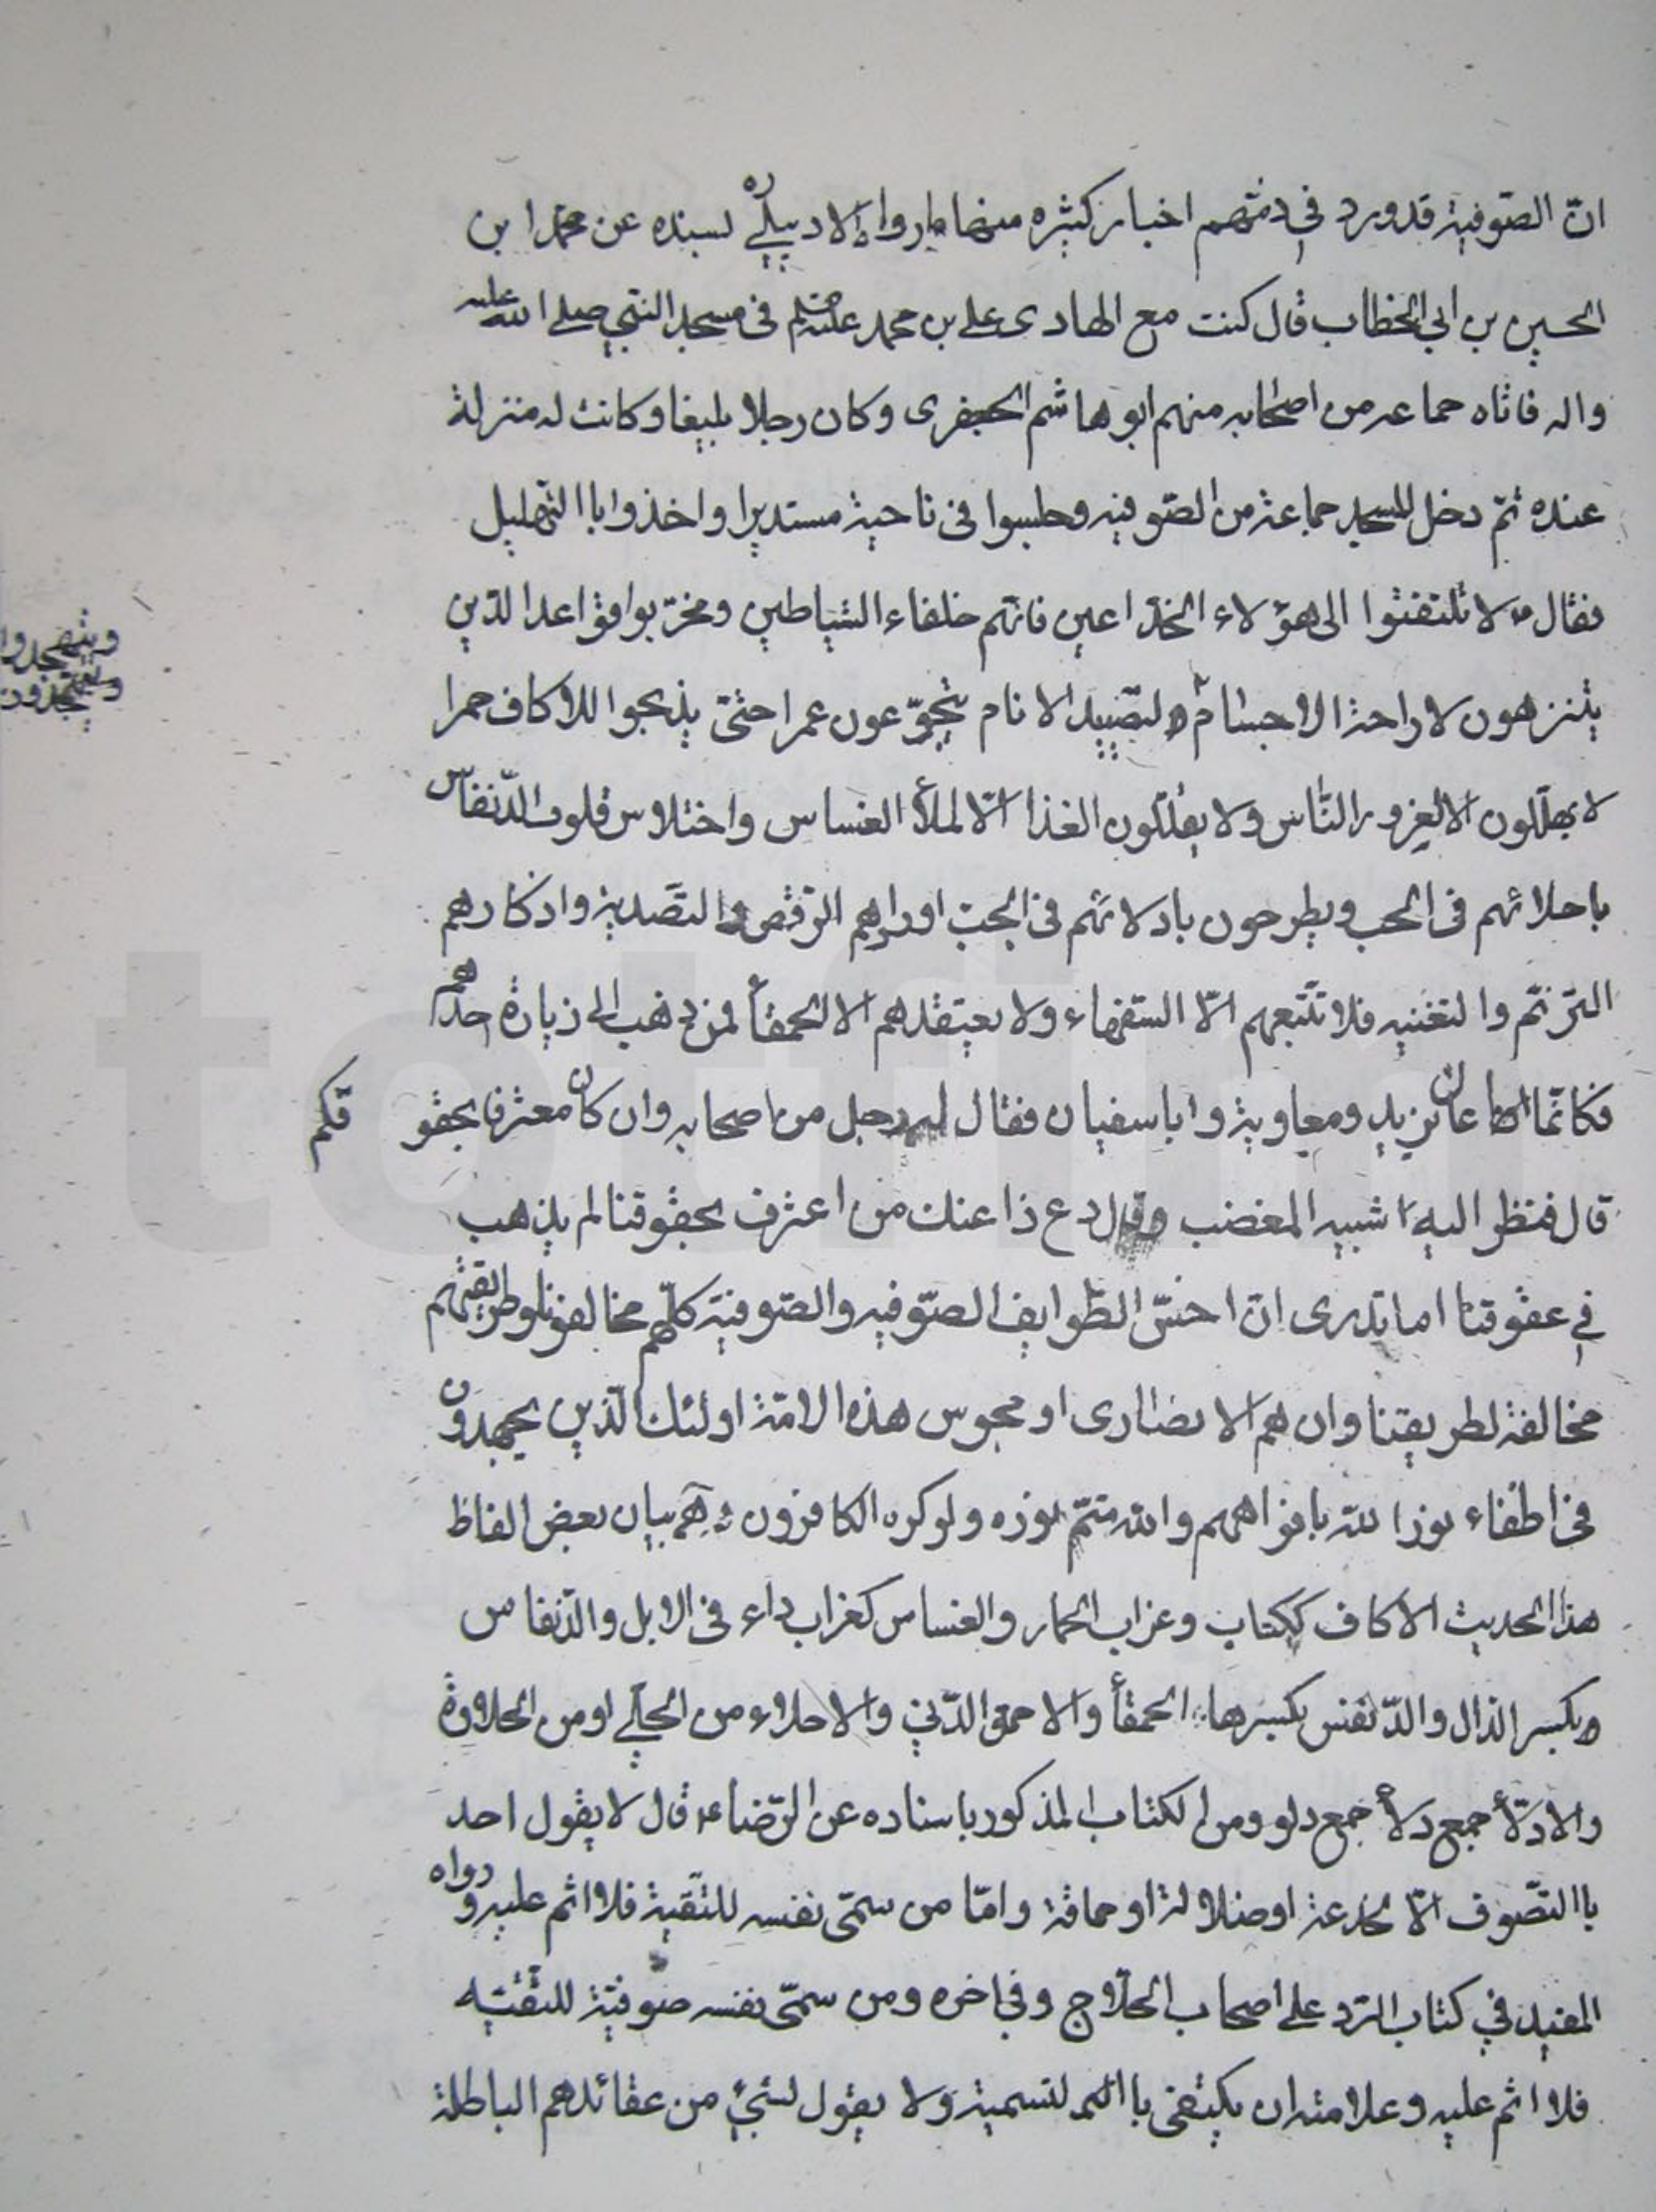 انّ الصّوفية قد ورد في ذمّهم اخبار كثيره منها ما رواه الاردبيلي بسنده عن محمّد ابن
الحسين بن ابي الخطاب قال كنت مع الهادى على بن محمد عليه السلم فى مسجد النبّي صلى الله عليه
واله فاتاه جماعه من اصحابه منهم ابو هاشم الجعفرى وكان رجلا بليغا وكانت له منزلة
عنده ثمّ دخل المسجد جماعة من الصّوفيه وجلسوا فى ناحية مستديرا واخذوا باالتّهليل
فقال ع لا تلتفتوا الى هؤلاء الخدّاعين فانّهم خلفاء الشياطين ومخرّبوا قواعد الدّين
يتزهون لاراحة الاجسام ولتصّييد الانام يتجوّعون عمرا حتّى يذبحوا للاكاف حمرا
لا يهلّلون الا لغرور النّاس ولا يقلّلون الغذا الّا لملأ العساس واختلاس قلوب الدّنفاس
باحلائهم فى الحب ويطرحون بادلائهم فى الجبّ اورادهم الرّقص والتّصدية واذكارهم
التّرنّم والتغنيه فلا تتّبعهم الّا السّفهاء ولا يعتقدهم الا الحمقأ فمن ذهب الى زيارة احدهم
فكانّما اعان يزيد ومعاوية وابا سفيان فقال له رجل من اصحابه وان كان معترفا بحقوقكم
قال فنظر اليه شبيه المغضب وقال دع ذا عنك من اعترف بحقوقنا لم يذهب
في عقوقنا اما تدرى انّ اخسّ الطّوايف الصّوفيه والصّوفيّة كلّهم مخالفونا وطريقتهم
مخالفة لطريقتنا وان هم الا نصارى او مجوس هذه الامّة اولئك الّذين يجهدون
فى اطفاء نور الله بافواههم والله متمّ نوره ولو كره الكافرون بيان بعض الفاظ
هذا الحديث الاكاف ككتاب وغراب الحمار والعساس كغراب داء فى الابل والدّنفاس
بكسر الدال والدّنفس بكسرها الحمقأ والاحمق الدّني والاحلاء من الحلّي او من الحلاوة
والادلأ جمع دلأ جمع دلو ومن الكتاب المذكور باسناده عن الرّضا ع قال لا يقول احد
باالتصّوف الّا لخدعة او ضلالة او حماقة وامّا من سمّى نفسه للتّقية فلا اثم عليه ورواه
المفيد في كتاب الرّد على اصحاب الحلّاج وفي اخره ومن سمّى نفسه صوفيّة للتّقيّه
فلا اثم عليه وعلامته ان يكتفى باالتسمية ولا يقول بشيئ من عقائدهم الباطلة